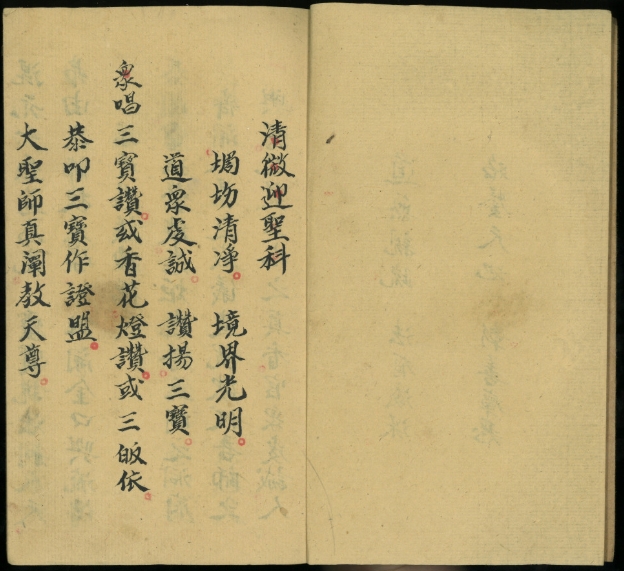 清微迎聖科
堨坊清凈 境界光明
道衆虔誠 讚揚三寶
衆唱三寶讚或香花燈讚或三皈依
恭叩三寶作證盟
大聖師真闡教天尊